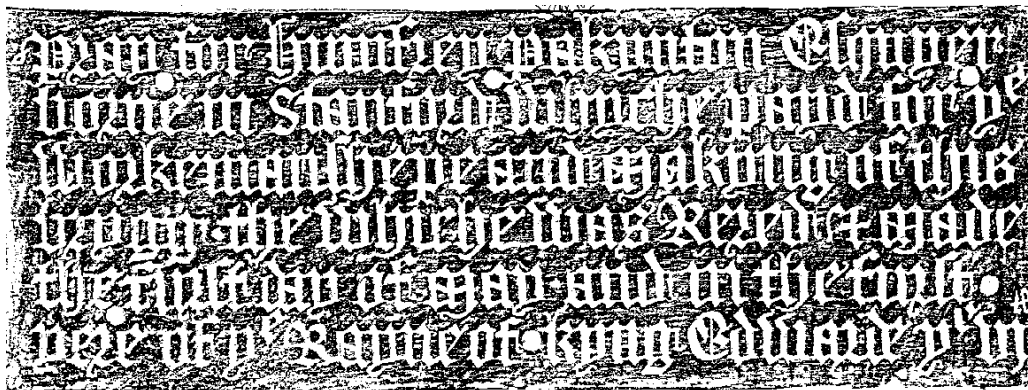 pray for humfrey pakynton Esquyer
borne in Stanford whiche payd for yᵉ
workemanshepe and makyng of this
brygg the whiche was Rered & made
the first day of may and in the first
yere of yᵉ Rayne of kyng Edwarde yᵉ vi